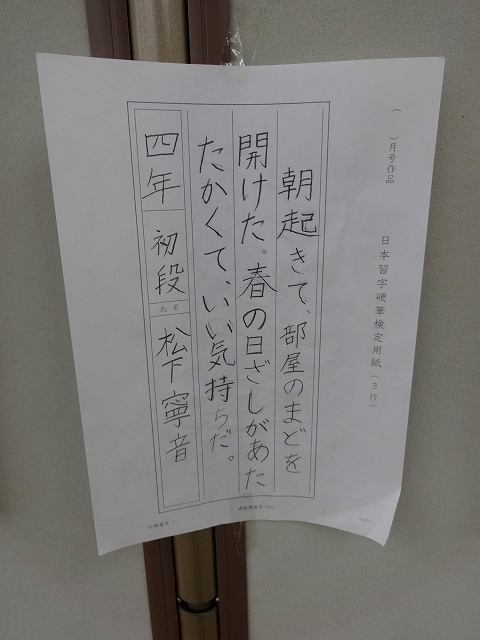 （　　）月号作品
日本習字硬筆検定用紙（３行）
朝起きて、部屋のまどを
開けた。春の日ざしがあた
たかくて、いい気持ちだ。
四年
初段
氏名
松下寧音